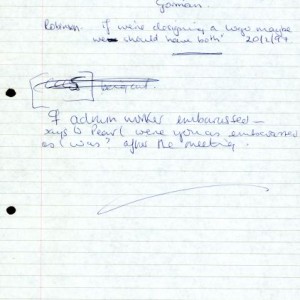 Gorman.
Robinson. if we're designing a logo maybe
we should have both 20/1/97
admin worker embarrassed -
says to Pearl were you as embarrassed
as I was? after the meeting.